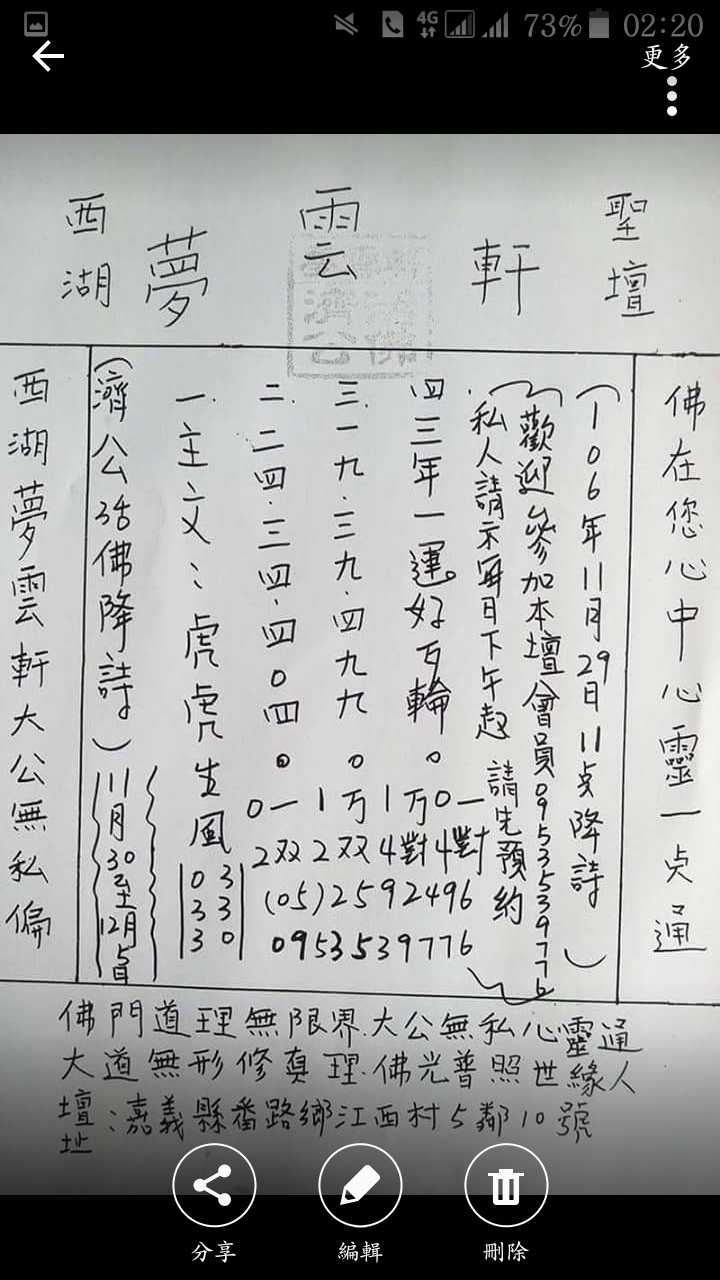 73% 02:20
4G
更多
西湖 夢 雲 軒 聖壇
濟公
活佛
佛在您心中心靈一点通
(106年11月29日11点降詩)
(歡迎參加本壇會員0953539776
私人請示每日下午起 請先預約)
四三年一運好百輪。
三一九.三九.四九九。
二.二四.三四.四0四。
一主文:虎虎生風
0一1万1万0一
2双2双4對4對
(05)2592496
0953539776
03
33
30
(濟公活佛降詩)
11月30至12月5日
西湖夢雲軒大公無私偏
佛門道理無限界.大公無私心靈通
大道無形修真理.佛光普照世緣人
壇址:嘉義縣番路鄉江西村5鄰10號
分享 編輯 刪除